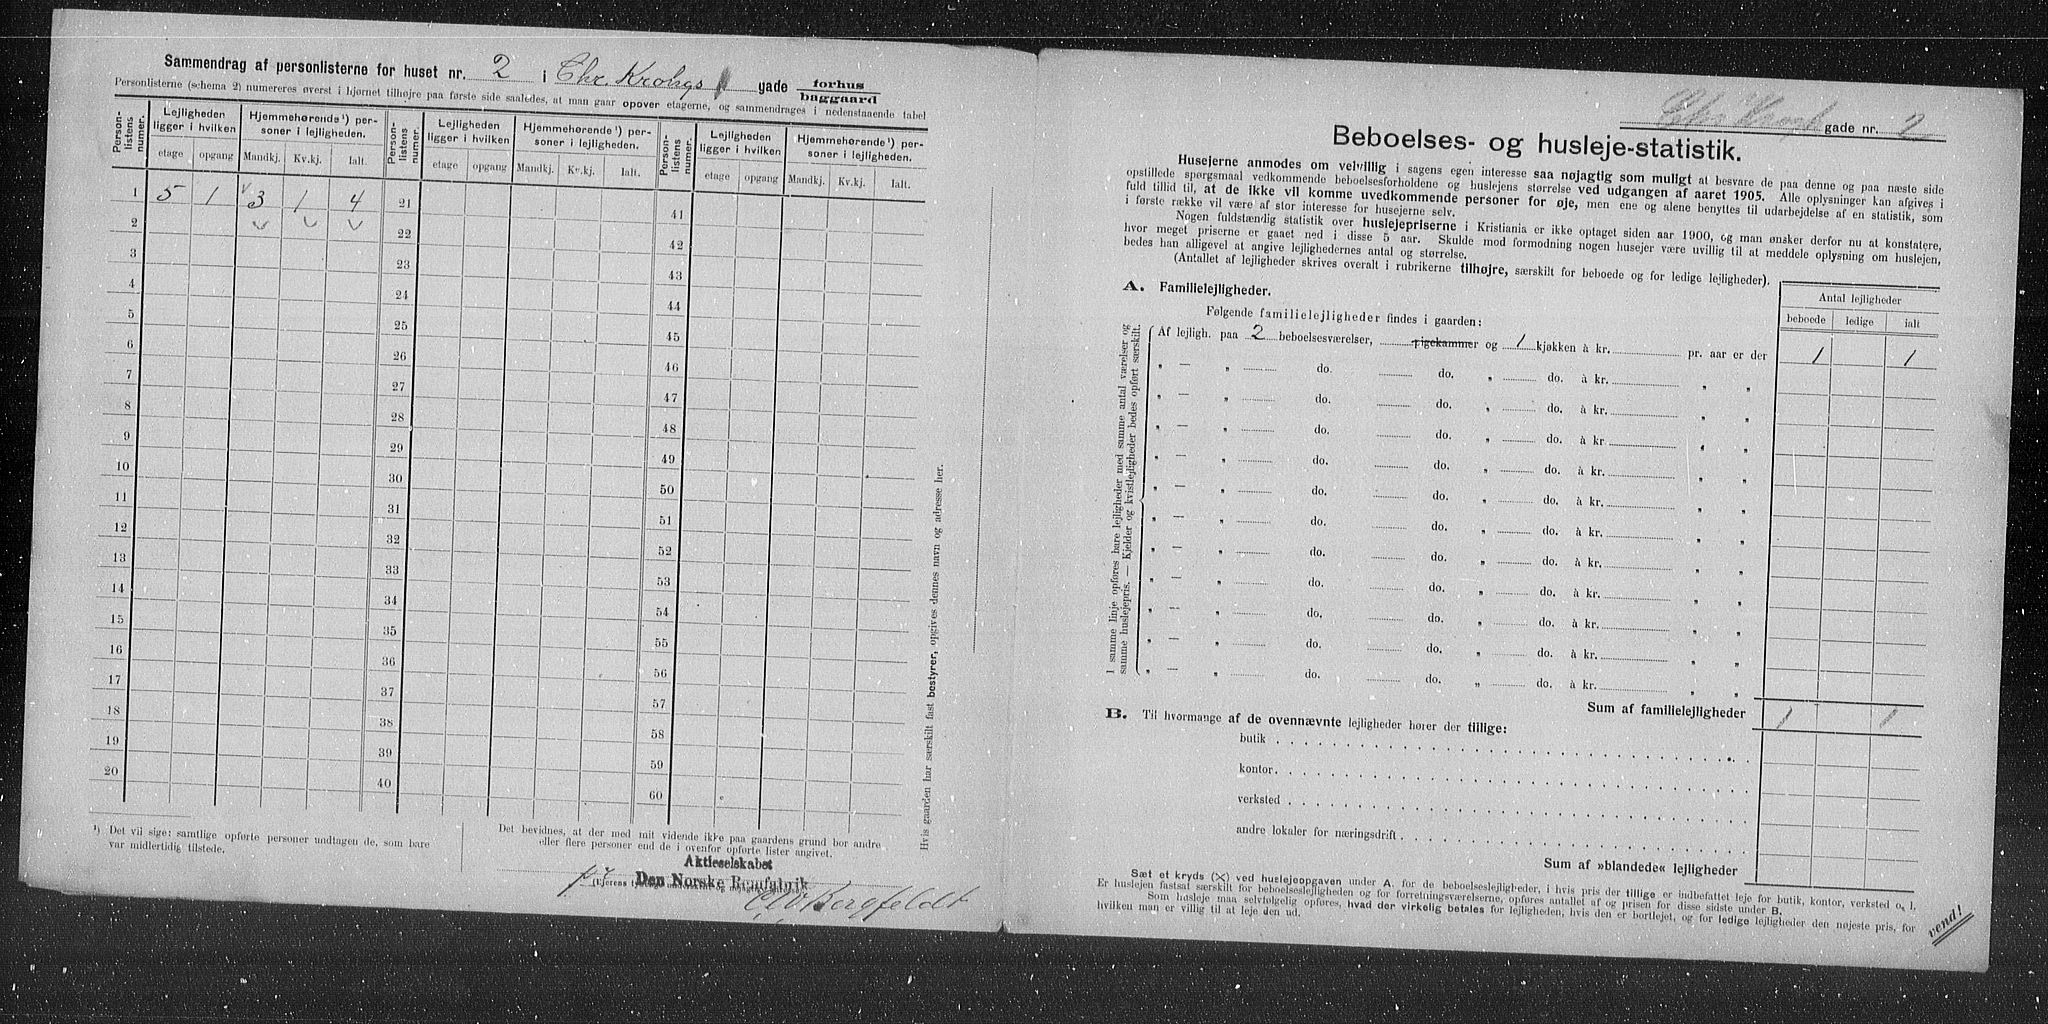 Sammendrag af personlisterne for huset nr. 2 i Chr. Krohgs gade forhus
baggaard
Personlisterne (schema 2) numereres øverst i hjørnet tilhøjre paa første side saaledes, at man gaar opover etagerne, og sammendrages i nedenstaaende tabel
Person-listens numer. Lejligheden ligger i hvilken Hjemmehørende¹) personer i lejligheden. Person-listens numer. Lejligheden ligger i hvilken Hjemmehørende¹) personer i lejligheden. Person-listens numer. Lejligheden ligger i hvilken Hjemmehørende¹) personer i lejligheden.
etage opgang Mandkj. Kv.kj. Ialt. etage opgang Mandkj. Kv.kj. Ialt. etage opgang Mandkj. Kv.kj. Ialt.
1 5 1 3 1 4 21 41
2 22 42
3 23 43
4 24 44
5 25 45
6 26 46
7 27 47
8 28 48
9 29 49
10 30 50
11 31 51
12 32 52
13 33 53
14 34 54
15 35 55
16 36 56
17 37 57
18 38 58
19 39 59
20 40 60
¹) Det vil sige: samtlige opførte personer undtagen de, som bare
var midlertidig tilstede.
Det bevidnes, at der med mit vidende ikke paa gaardens grund bor andre
eller flere personer end de i ovenfor opførte lister angivet.
Aktieselskabet
Den Norske Remfabrik
Bergfeldt
Hvis gaarden har særskilt fast bestyrer, opgives dennes navn og adresse her.
gade nr. 2
Beboelses- og husleje-statistik.
Husejerne anmodes om velvillig i sagens egen interesse saa nøjagtig som muligt at besvare de paa denne og paa næste side
opstillede spørgsmaal vedkommende beboelsesforholdene og huslejens størrelse ved udgangen af aaret 1905. Alle oplysninger kan afgives i
fuld tillid til, at de ikke vil komme uvedkommende personer for øje, men ene og alene benyttes til udarbejdelse af en statistik, som
i første række vil være af stor interesse for husejerne selv.
Nogen fuldstændig statistik over huslejepriserne i Kristiania er ikke optaget siden aar 1900, og man ønsker derfor nu at konstatere,
hvor meget priserne er gaaet ned i disse 5 aar. Skulde mod formodning nogen husejer være uvillig til at meddele oplysning om huslejen,
bedes han alligevel at angive lejlighedernes antal og størrelse.
(Antallet af lejligheder skrives overalt i rubrikerne tilhøjre, særskilt for beboede og for ledige lejligheder).
A. Familielejligheder.
Antal lejligheder
Følgende familielejligheder findes i gaarden:
beboede ledige ialt
Af lejligh. paa 2 beboelsesværelser, pigekammer og 1 kjøkken à kr. pr. aar er der 1 1
„ — „ do. do. „ do. à kr. „ „
„ — „ do. do. „ do. à kr. „ „
„ — „ do. do. „ do. à kr. „ „
„ — „ do. do. „ do. à kr. „ „
„ — „ do. do. „ do. à kr. „ „
„ — „ do. do. „ do. à kr. „ „
„ — „ do. do. „ do. à kr. „ „
„ — „ do. do. „ do. à kr. „ „
„ — „ do. do. „ do. à kr. „ „
„ — „ do. do. „ do. à kr. „ „
„ — „ do. do. „ do. à kr. „ „
I samme linje opføres bare lejligheder med samme antal værelser og
samme huslejepris. — Kjelder og kvistlejligheder bedes opført særskilt.
Sum af familielejligheder 1 1
B. Til hvormange af de ovennævnte lejligheder hører der tillige:
butik
kontor
verksted
andre lokaler for næringsdrift
Sum af »blandede« lejligheder
Sæt et kryds (X) ved huslejeopgaven under A. for de beboelseslejligheder, i hvis pris der tillige er indbefattet leje for butik, kontor, verksted o. l.
Er huslejen fastsat særskilt for beboelseslejligheden og for forretningsværelserne, opføres antallet af og prisen for disse sidste under B.
Som husleje maa selvfølgelig opføres, hvad der virkelig betales for lejligheden, hvis den er bortlejet, og for ledige lejligheder den nøjeste pris, for
hvilken man er villig til at leje den ud.
vend!